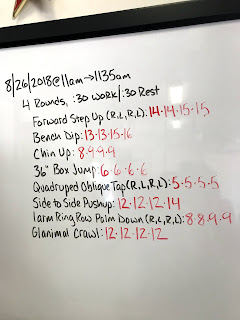 8/26/2018@11am→1135am
4 Rounds, :30 work/:30 Rest
Forward Step Up (R,L,R,L): 14·14·15·15
Bench Dip: 13·13·15·16
Chin Up: 8·9·9·9
36" Box Jump: 6·6·6·6
Quadruped Oblique Tap (R,L,R,L): 5·5·5·5
Side to Side Pushup: 12·12·12·14
1arm Ring Row Palm Down (R,L,R,L): 8·8·9·9
Glanimal Crawl: 12·12·12·12